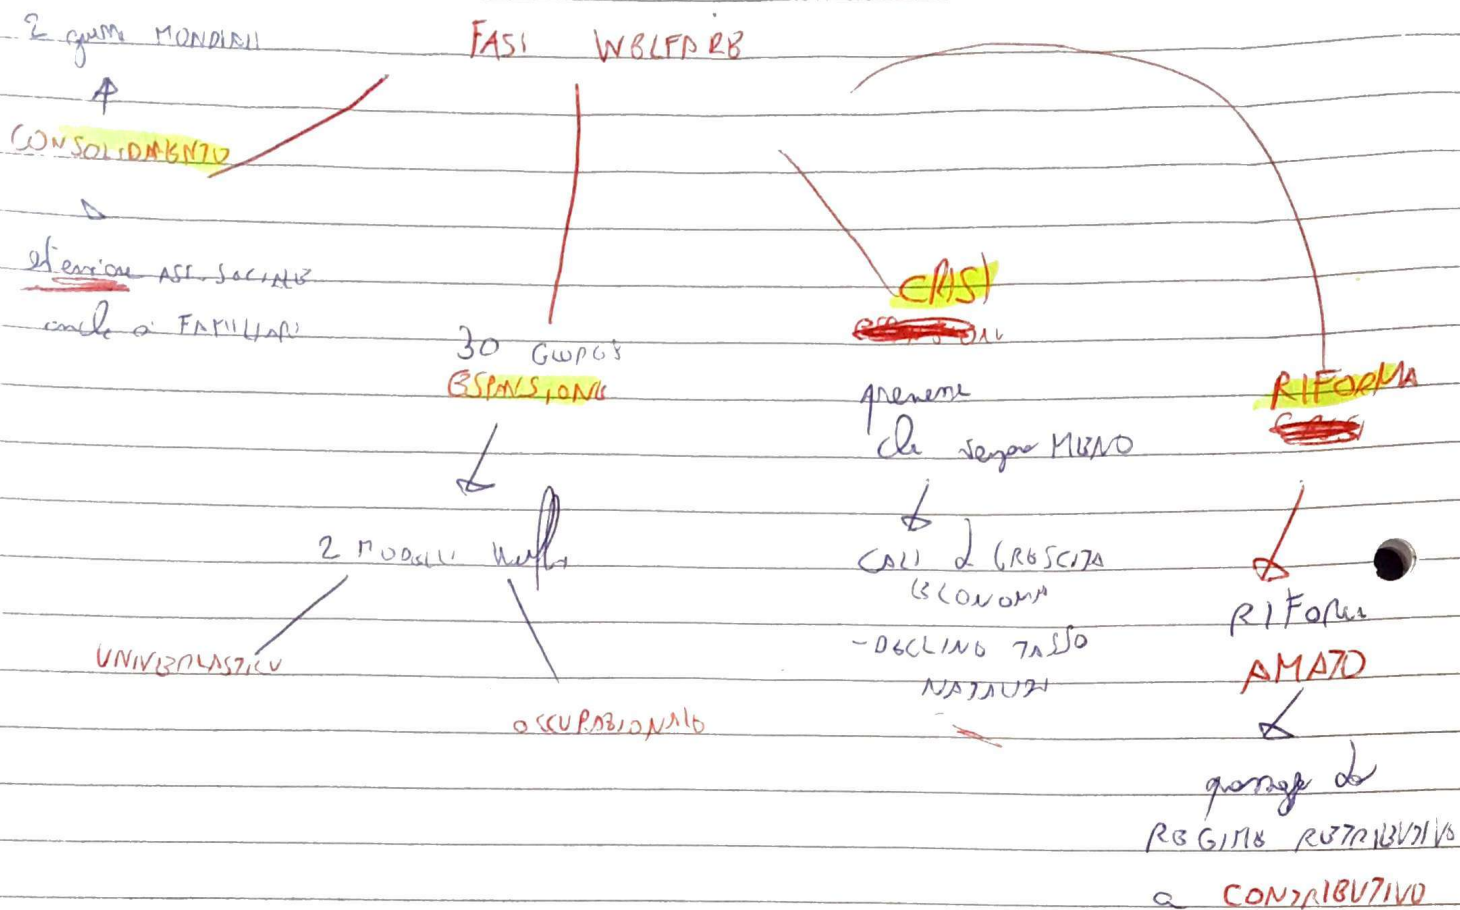 FASI WELFARE
2 guerre MONDIALI
CONSOLIDAMENTO
estensione ASS. SOCIALE
anche a FAMILIARI
30 GLORIOSI
ESPANSIONE
2 MODELLI Welfare
UNIVERSALISTICO
OCCUPAZIONALE
CRISI
premesse
che vengono MENO
CALI di CRESCITA
ECONOMIA
- DECLINO TASSO
NATALITÀ
RIFORMA
RIFORMA
AMATO
passaggio da
REGIME RETRIBUTIVO
a CONTRIBUTIVO